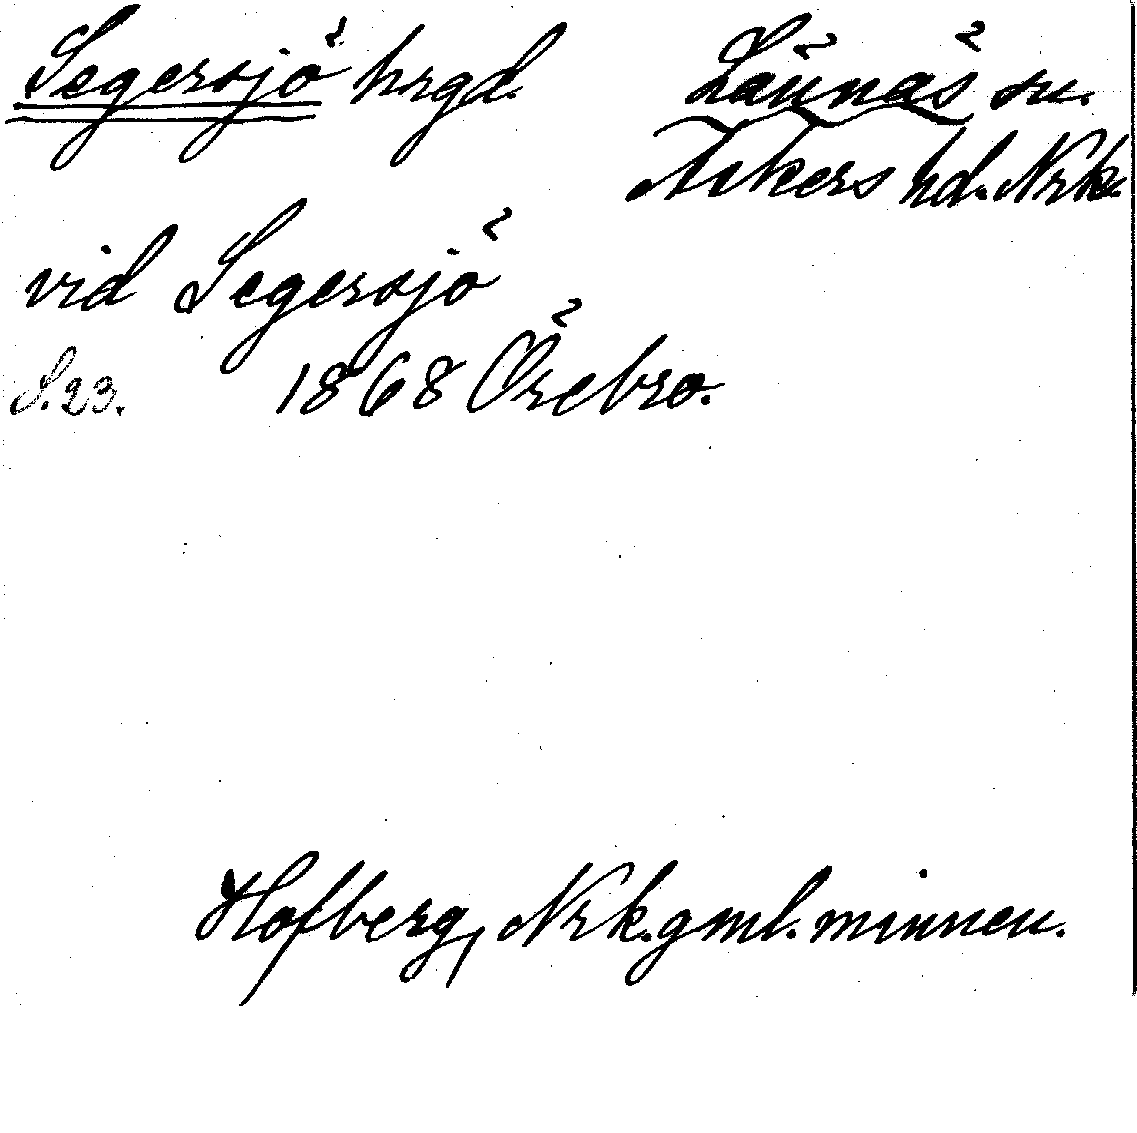 Segersjö hrgd. Lännäs sn.
Askers hd. Nrk.
vid Segersjö
S. 23. 1868 Örebro.
Hofberg, Nrk. gml. minnen.